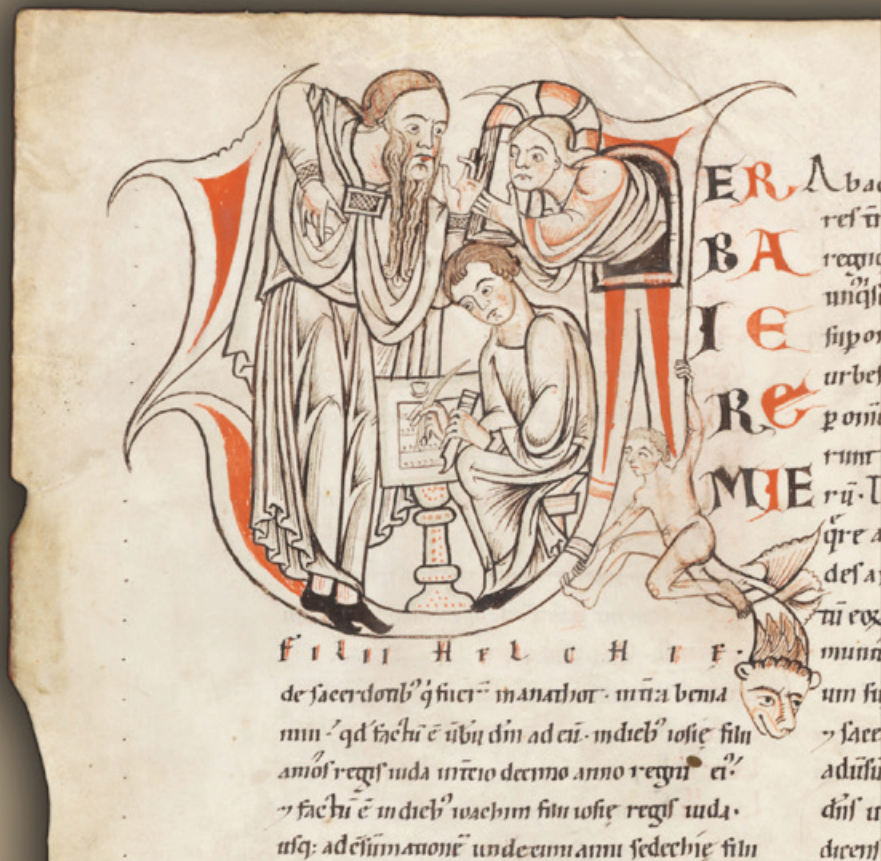 ER
BA
IE
RE
MIE
FILII HELCHIE·
de sacerdotib' q̇ fuer̄ in anathot · in t̄ra benia
min · qd̓ factū ē ūbū dn̄i ad eū · in dieb' iosię filii
amos regis iuda in t̓cio decimo anno regni ei'
⁊ factū ē in dieb' ioachim filii iosię regis iuda ·
usq; ad c̄sūmationē undecimi anni sedechię filii
A bac
regno
urbes
runt
rū · 
q̄re a
des a
tū
um
⁊ sace
dn̄s
dicens